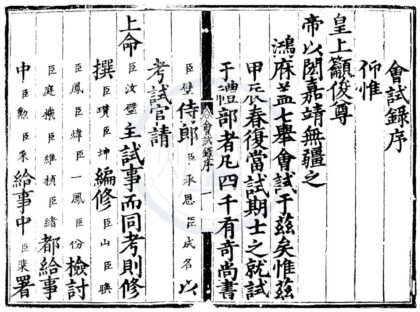 會試録序
仰惟
皇上籲俊尊
帝以閎嘉靖無疆之
鴻庥葢七舉會試于兹矣惟兹
甲辰春復當試期士之就試
于禮部者凡四千有奇尚書
會試録序 一
臣璧侍郎臣承恩臣成名以
考試官請
上命臣汝璧主試事而同考則修
撰臣瓚臣坤編修臣山臣
臣鳳臣煒臣一鳳臣份檢討
臣庭臣維楨臣緒都給事
中臣勲臣釆給事中臣棐署